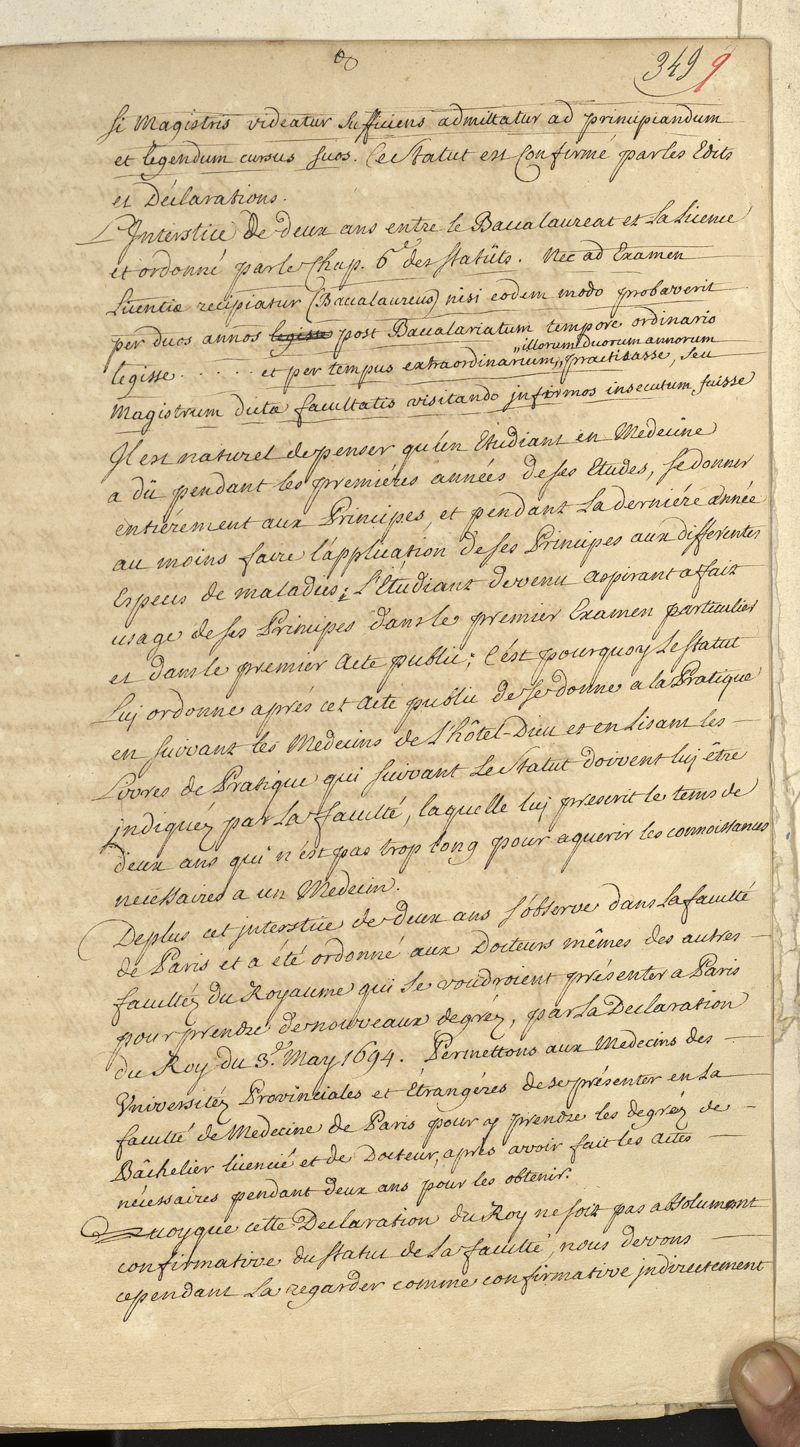 349 9
Si Magistris videatur sufficiens admittatur ad principiandum
et legendum cursus suos. Ce Statut est Confirmé par les Edits
et Déclarations.
L'Interstice de deux ans entre le Baccalaureat et La Licence
est ordonné par le Chap. 6e. des Statûts. Nec ad Examen
Licentiæ recipiatur (Baccalaureus) nisi eodem modo probaverit
per duos annos legisse post Baccalariatum tempore ordinario
legisse . . . . . et per tempus extraordinarium „illorum duorum annorum„ practisasse, seu
Magistrum dictæ facultatis visitando jnfirmos insecutum fuisse
Jl est naturel de penser qu'un Etudiant en Medecine
a dû pendant les premiéres années de ses Etudes, se donner
entiérement aux Principes, et pendant La derniére année
au moins faire l'application de ses Principes aux differentes
Especes de maladies; L'Etudiant devenu aspirant a fait
usage de ses Principes dans le premier Examen particulier
et dans le premier Acte public; C'est pourquoy Le Statut
Luy ordonne aprés cet Acte public de se donne a la Pratique
en suivant les Medecins de L'hôtel-Dieu et en Lisant les
Livres de Pratique qui suivant Le Statut doivent luy être
jndiquéz par La faculté, laquelle luy prescrit le tems de
deux ans qui n'est pas trop long pour aquerir les connoissances
necessaires a un Medecin.
Deplus cet jnterstice de deux ans s'observe dans La faculté
de Paris et a été ordonné aux Docteurs mêmes des autres
facultéz du Royaume qui se voudroient présenter a Paris
pour prendre de nouveaux degréz, par La Declaration
du Roy du 3e. May 1694. Permettons aux Medecins des
Vniversitéz Provinciales et Étrangéres de se présenter en La
faculté de Medecine de Paris pour y prendre les degréz de
Bâchelier licencié et de Docteur, aprés avoir fait les Actes
nécessaires pendant deux ans pour les obtenir.
Quoyque cette Declaration du Roy ne soit pas absolument
confirmative du Statut de La faculté, nous devons
cependant La regarder comme confirmative jndirectement